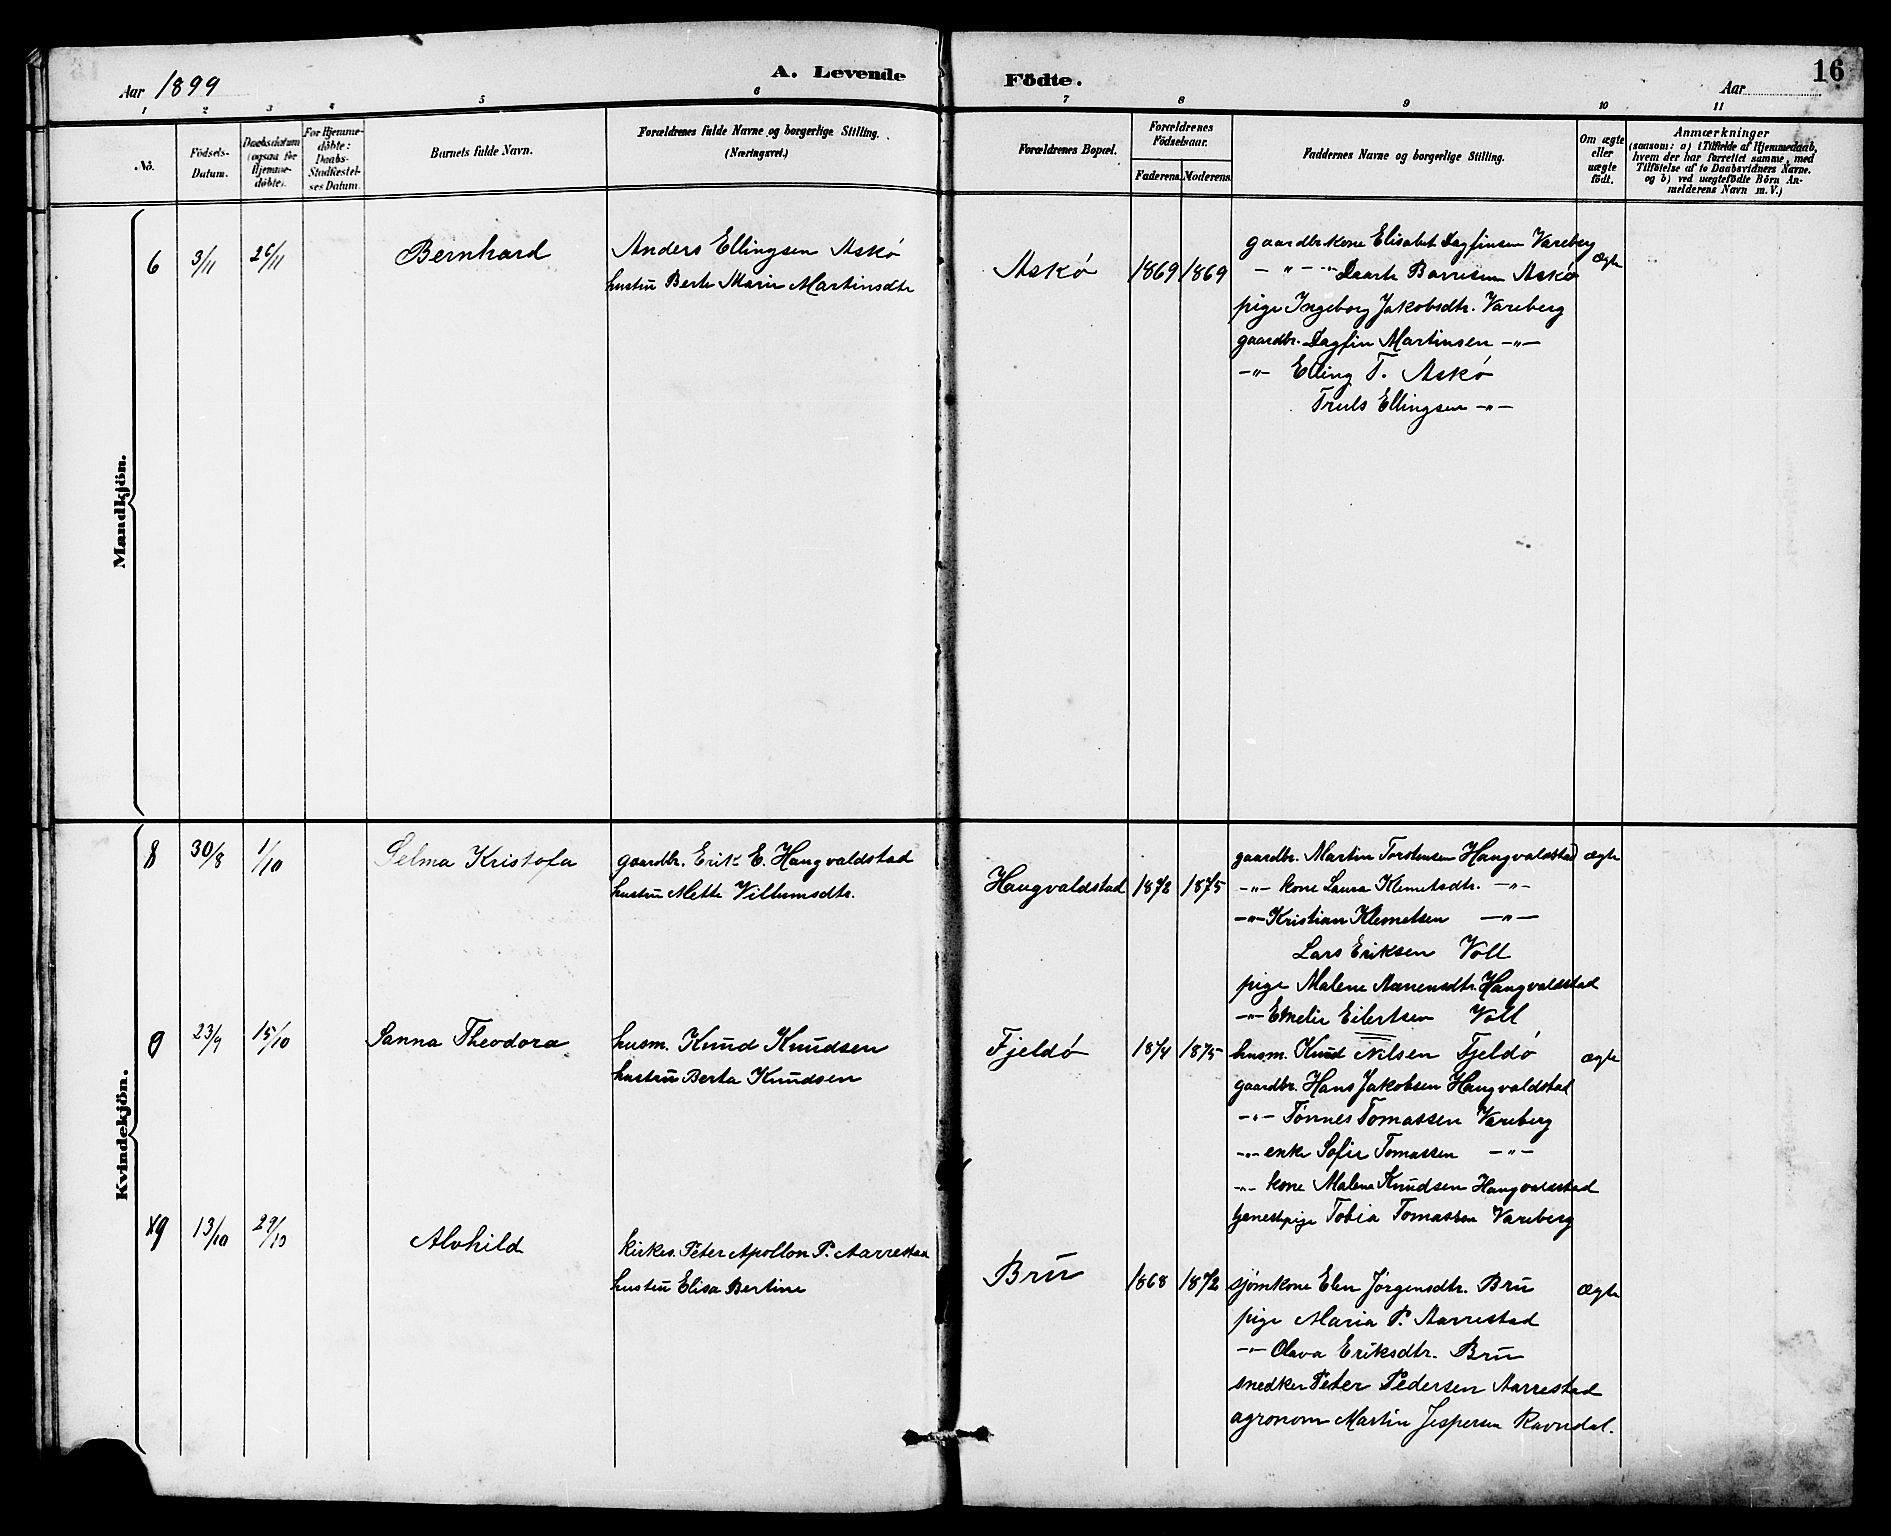 Aar 1899
A. Levende
Födte.
Aar
16
1 2 3 4 5 6 7 8 9 10 11
No.
Födsels-
Datum.
Daabsdatum
(ogsaa for
Hjemme-
döbte).
For Hjemme-
döbte:
Daabs-
Stadfæstel-
ses Datum.
Barnets fulde Navn.
Forældrenes fulde Navne og borgerlige Stilling.
(Næringsvei.)
Forældrenes Bopæl.
Forældrenes
Födselsaar.
Faderens. Moderens.
Faddernes Navne og borgerlige Stilling.
Om ægte
eller
uægte
födt.
Anmærkninger
(saasom: a) i Tilfælde af Hjemmedaab,
hvem der har forrettet samme, med
Tilföielse af to Daabsvidners Navne.
og b) ved uægtefödte Börn An-
melderens Navn m. V.)
Mandkjön.
6 3/11 26/11 Bernhard
Anders Ellingsen Askö
hustru Berte Marie Martinsdtr
Askö 1869 1869
gaardbr.kone Elisabet Dagfinsen Vareberg
-"- -"- Daarte Barresen Askö
pige Ingeborg Jakobsdtr. Vareberg
gaardbr. Dagfin Martinsen -"-
-"- Elling T. Askö
Truls Ellingsen -"-
ægte
Kvindekjön.
8 30/8 1/10 Selma Kristofa
gaardbr. Erik E. Haugvaldstad
hustru Mette Villumsdtr.
Haugvaldstad 1872 1875
gaardbr. Martin Torstensen Haugvaldstad
-"- kone Laura Klemetsdtr. -"-
-"- Kristian Klemetsen -"-
Lars Eriksen Voll
pige Malene Aanensdtr. Haugvaldstad
-"- Emelie Eilertsen Voll
ægte
9 23/9 15/10 Sanna Theodora
husm. Knud Knudsen
hustru Berta Knudsen
Fjeldö 1874 1875
husm. Knud Nilsen Fjeldö
gaardbr. Hans Jakobsen Haugvaldstad
-"- Tönnes Tomassen Vareberg
-"- enke Sofie Tomassen -"-
-"- kone Malena Knudsen Haugvaldstad
tjenestpige Tobia Tomassen Vareberg
ægte
13/10 29/10 Alvhild
kirkes. Peter Apollon P. Aarrestad
hustru Elisa Bertine
Bru 1868 1872
sjömkone Elen Jörgensdtr. Bru
pige Maria P. Aarrestad
-"- Olava Eriksdtr. Bru
snedker Peter Pedersen Aarrestad
agronom Martin Jespersen Ravndal.
ægte